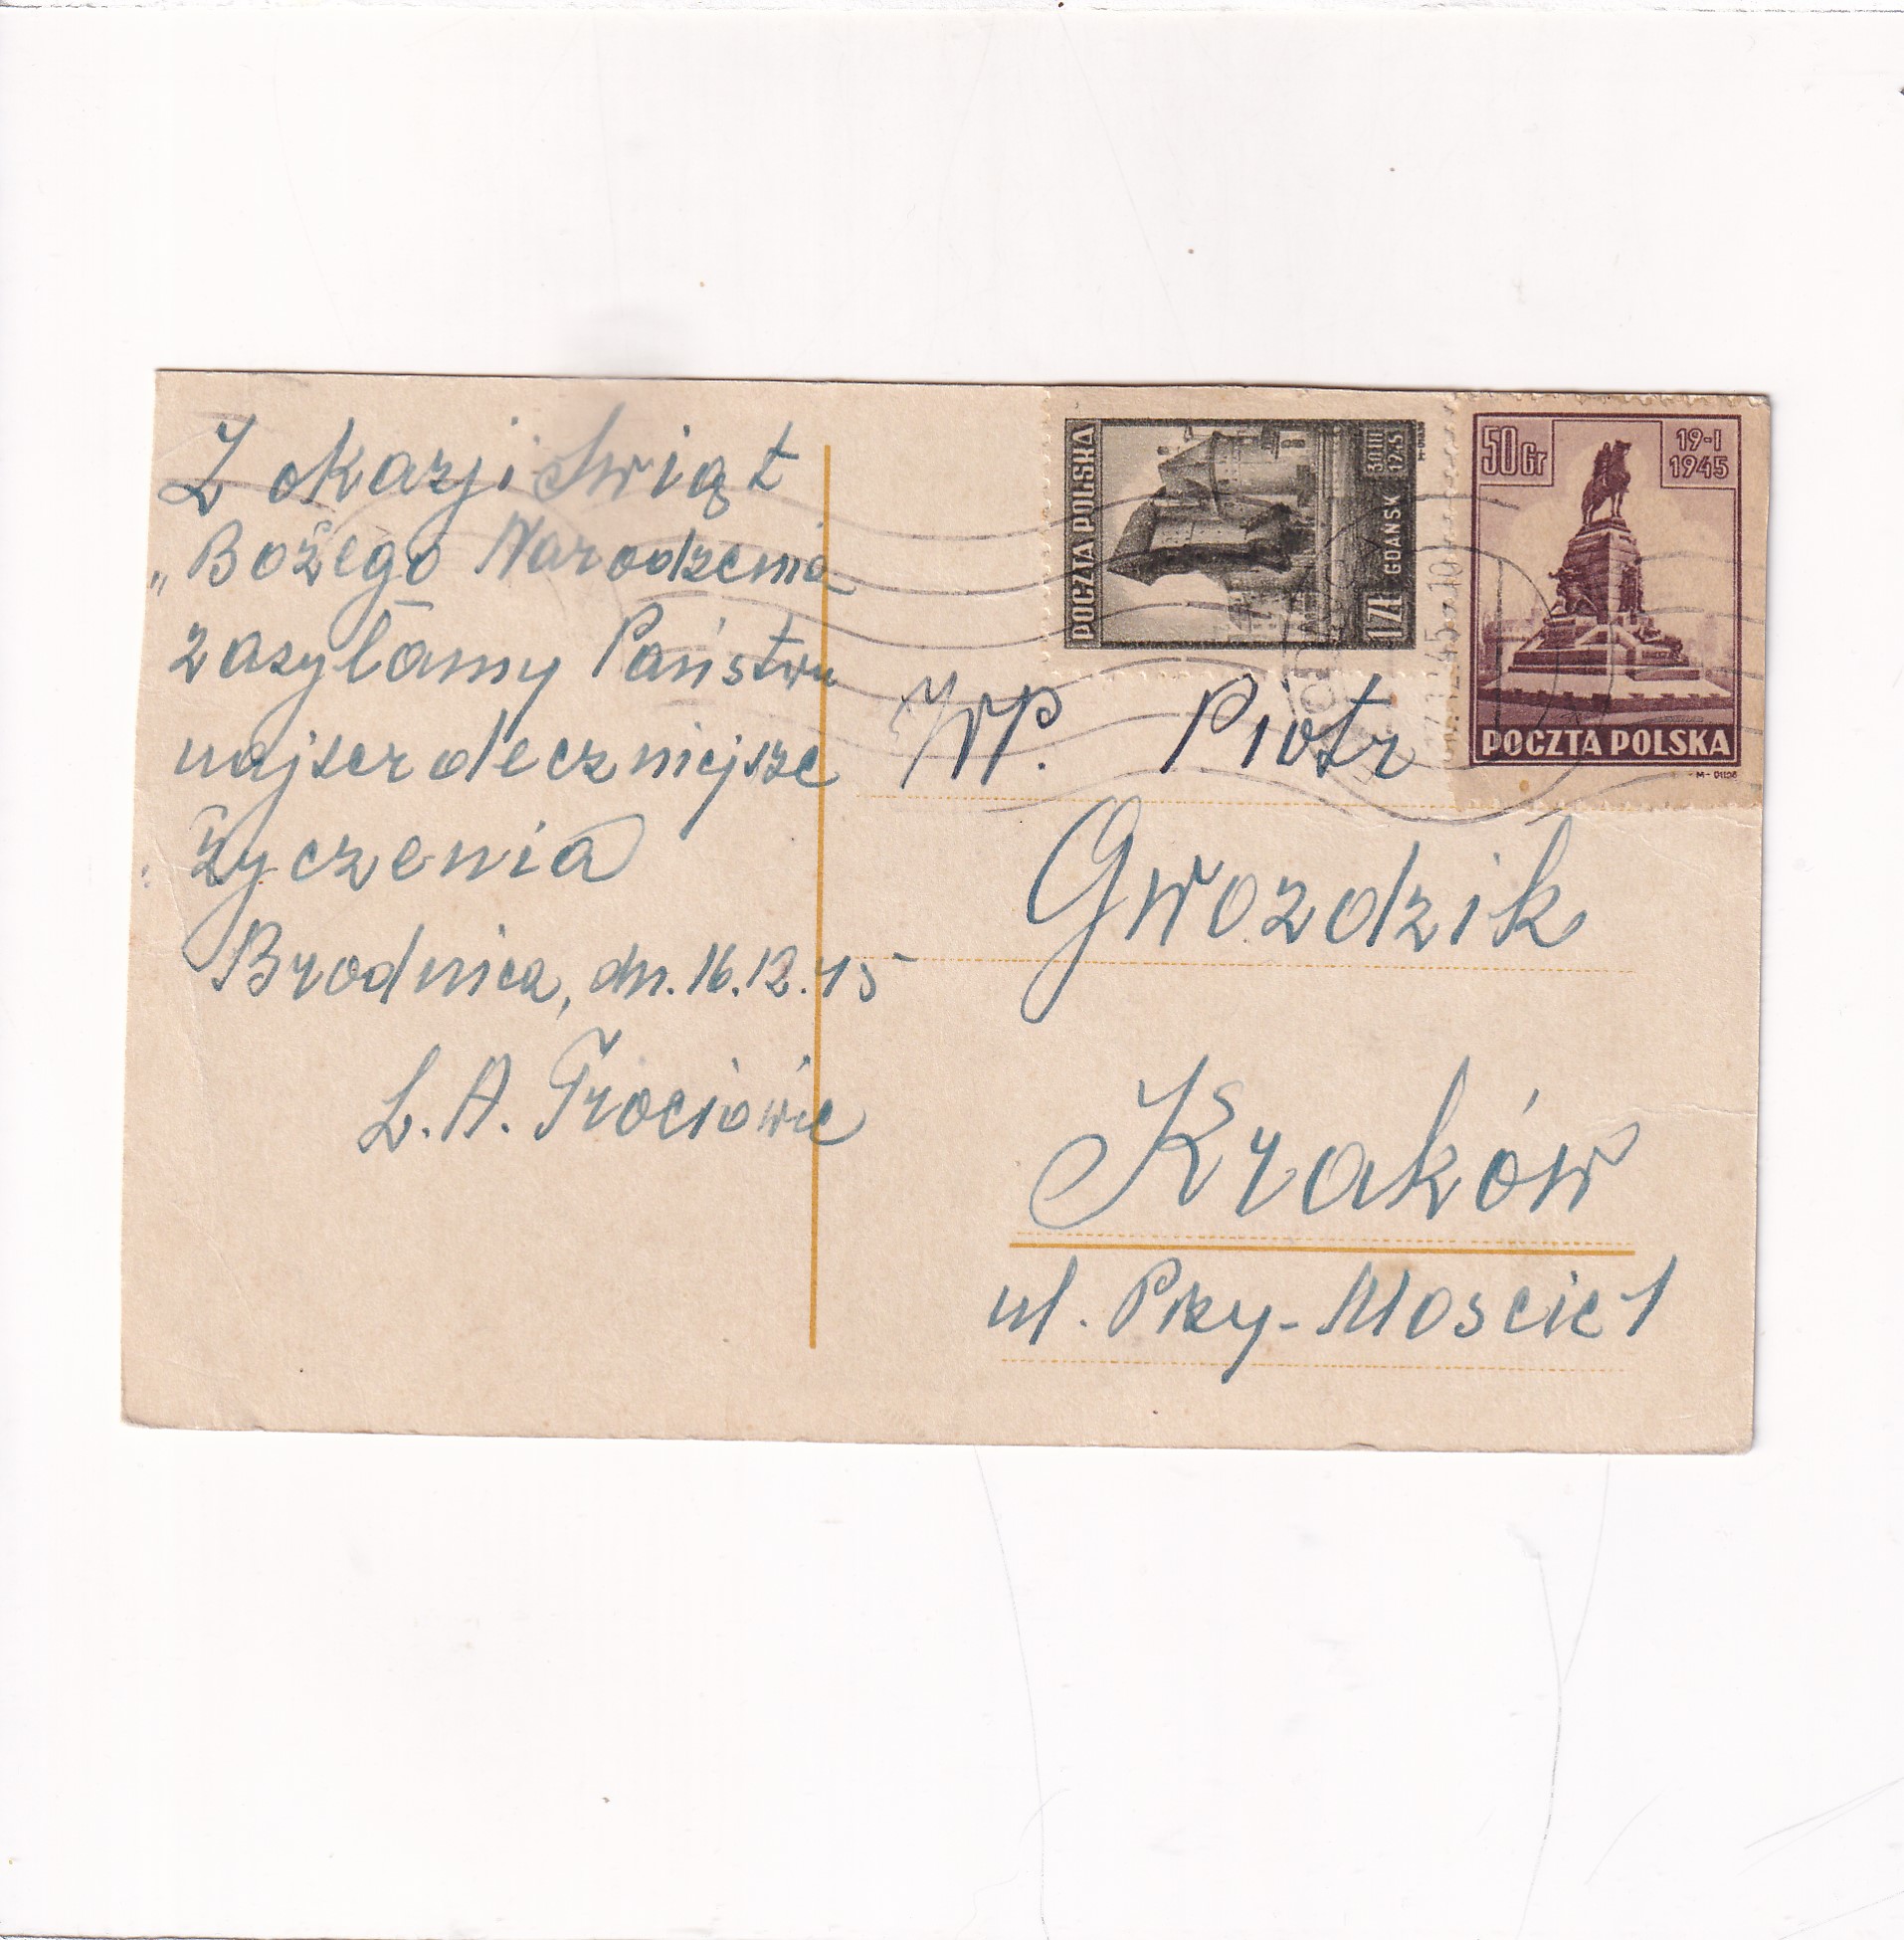 Z okazji Swiąt
„Bożego Narodzenia
zasyłamy Państwu
najserdeczniejsze
życzenia
Brodnica, dn. 16.12.45
L. A. Trociowie
POCZTA POLSKA
1 ZŁ GDAŃSK 30 III 1945
50 Gr
19-I
1945
POCZTA POLSKA
12.45.-10
WP. Piotr
Gwozdzik
Kraków
ul. Przy-Moscie 1